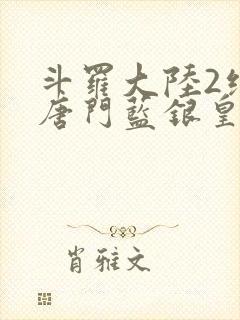 斗羅大陸2
唐門藍銀皇
肖雅文